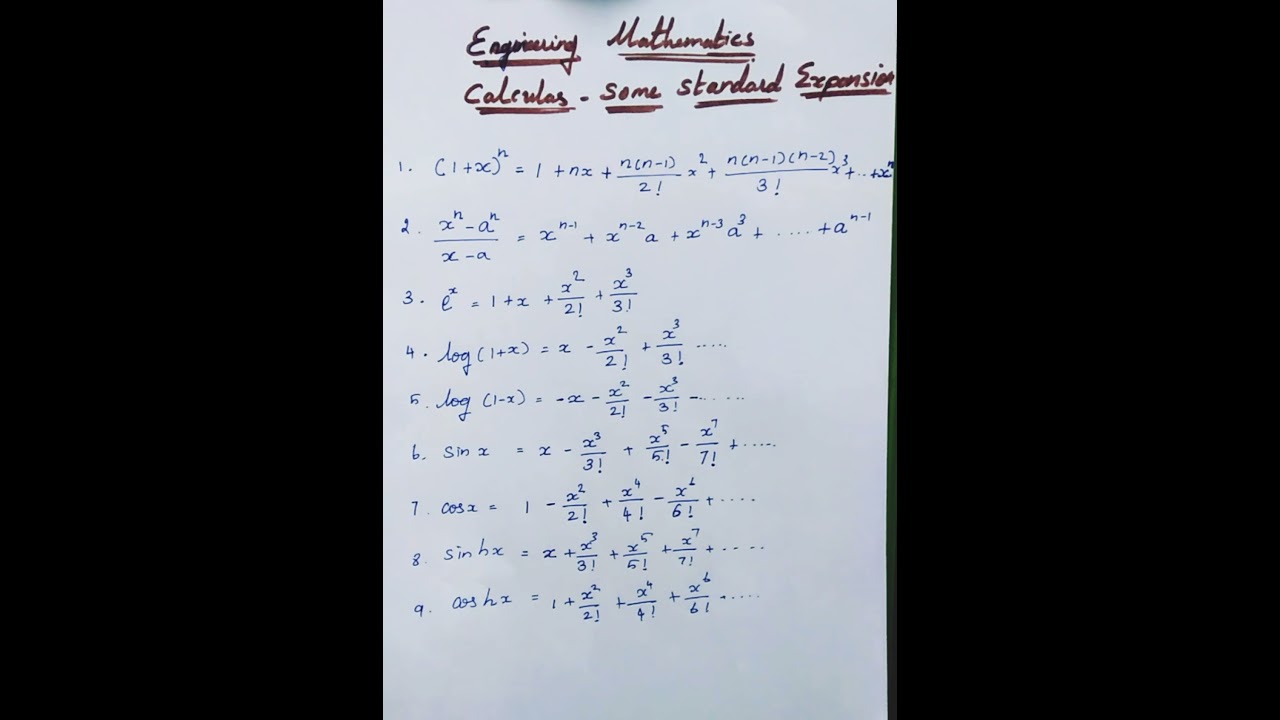 Enginering Mathematics
Calculas - Some Standard Expansion
1. (1+x)^n = 1 + nx + n(n-1)/2! x^2 + n(n-1)(n-2)/3! x^3 + .. + x^n
2. x^n - a^n / x - a = x^n-1 + x^n-2 a + x^n-3 a^3 + ..... + a^n-1
3. e^x = 1 + x + x^2/2! + x^3/3!
4. log(1+x) = x - x^2/2! + x^3/3! .....
5. log (1-x) = -x - x^2/2! - x^3/3! - ......
6. sin x = x - x^3/3! + x^5/5! - x^7/7! + .....
7. cosx = 1 - x^2/2! + x^4/4! - x^6/6! + ....
8. sinhx = x + x^3/3! + x^5/5! + x^7/7! + .....
9. coshx = 1 + x^2/2! + x^4/4! + x^6/6! .....